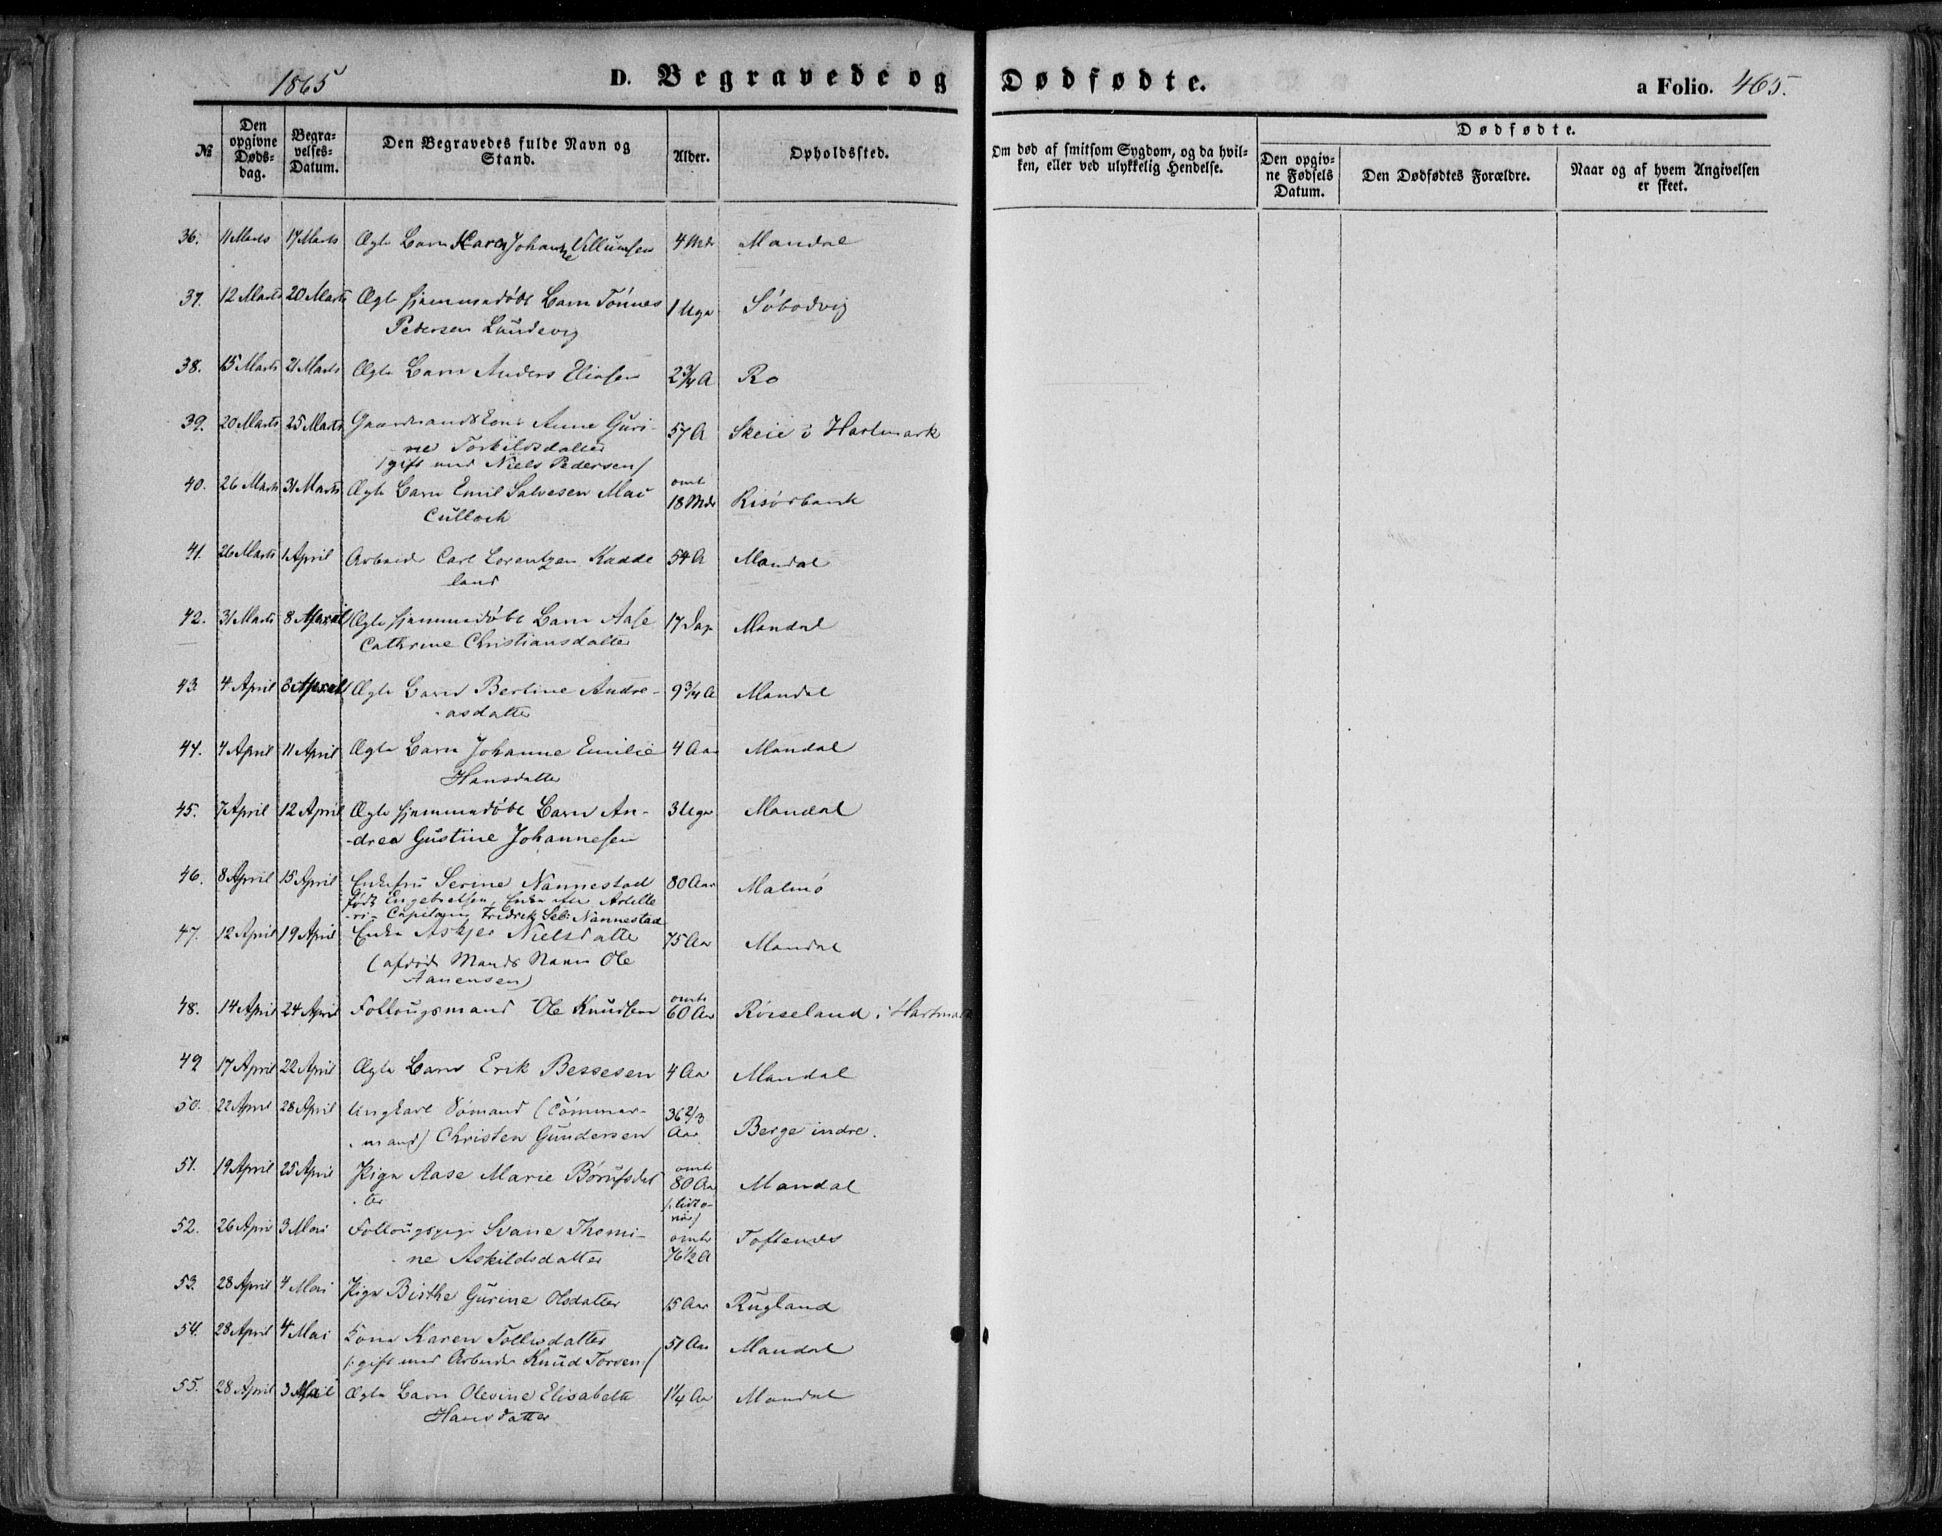 1865 D. Begravede og Dødfødte. a Folio. 465.
№ Den opgivne Døds-dag. Begra-velses-Datum. Den Begravedes fulde Navn og Stand. Alder. Opholdssted. Om død af smitsom Sygdom, og da hvil-ken, eller ved ulykkelig Hendelse. Dødfødte. Den opgiv-ne Fødsels Datum. Den Dødfødtes Forældre. Naar og af hvem Angivelsen er skeet.
36. 11 Marts 17 Marts Ægte Barn Karen Johanne Villumsen 4 Mdr Mandal
37. 12 Marts 20 Marts Ægte hjemmedøbt Barn Tønnes 1 Uge
Pedersen Landevig
38. 15 Marts 21 Marts Ægte Barn Anders Eliasen 2 3/4 A Ro
39. 20 Marts 25 Marts Gaardmandskone Anne Guri- 57 A Skeie i Hartmark
ne Torkildsdatter
/gift med Niels Pedersen/
40. 26 Marts 31 Marts Ægte Barn Emil Salvesen Mac omt 18 Mdr Risørbank
Culloch
41. 26 Marts 1 April Arbeider Carl Lorentzen Kadde 54 A Mandal
land
42. 31 Marts 8 April Ægte hjemmedøbt Barn Aase 17 Dage Mandal
Cathrine Christiansdatter
43. 4 April 8 April Ægte Barn Bertine Andre- 9 3/4 A Mandal
-asdatter
44. 7 April 11 April Ægte Barn Johanne Emilie 4 Aar Mandal
Hansdatter
45. 7 April 12 April Ægte hjemmedøbt Barn An- 3 Uger Mandal
-drea Gustine Johannesen
46. 8 April 15 April Enkefru Serine Nannestad 80 Aar Malmø
født Engebretsen, Enke efter Artille
-ri- Capitain Fredrik Seb: Nannestad
47. 12 April 19 April Enke Askjer Nielsdatter 75 Aar Mandal
(afdøde Mands Navn Ole
Aanensen)
48. 14 April 24 April Follougsmand Ole Knudsen omtr 60 Aar Røiseland i Hartmark
49 17 April 22 April Ægte Barn Erik Bessesen 4 Aar Mandal
50. 22 April 28 April Ungkarl Sømand (Tømmer- 36 2/3 Aar Berge indre.
-mand) Christen Gundersen
51. 19 April 25 April Pige Aase Marie Børufsdat omtr 80 Aar Mandal
-ter
52. 26 April 3 Mai Follougspige Svane Thomi- omtr 76 1/2 A Toftenes
-ne Askildsdatter
53. 28 April 4 Mai Pige Birthe Gurine Olsdatter 15 Aar Rugland
54. 28 April 4 Mai Kone Karen Tollevsdatter 51 Aar Mandal
/: gift med Arbeider Knud Torsen :/
55. 28 April 3 Mai Ægte Barn Olevine Elisabeth 1 1/4 Aar Mandal
Hansdatter